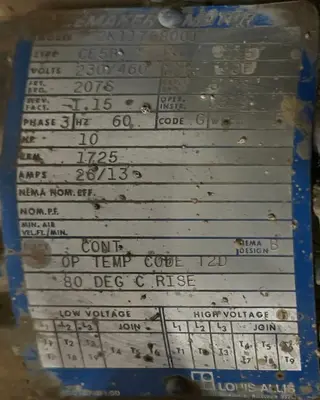 PACEMAKER MOTOR
TYPE CESB
VOLTS 230/460
PRT. SPC. 2076
SRV. FACT. 1.15 OPER. INSTR.
PHASE 3 HZ 60 CODE G
HP 10
RPM 1725
AMPS 26/13
NEMA NOM. EFF.
NOM. P.F.
MIN. AIR VEL. FT/MIN.
CONT NEMA DESIGN B
OP TEMP CODE T2D
80 DEG C RISE
LOW VOLTAGE HIGH VOLTAGE
L1 L2 L3 JOIN L1 L2 L3 JOIN
T1 T2 T3 T4 T5 T6 T1 T2 T3 T4 T5 T6
T7 T8 T9 T7 T8 T9
LOUIS ALLIS